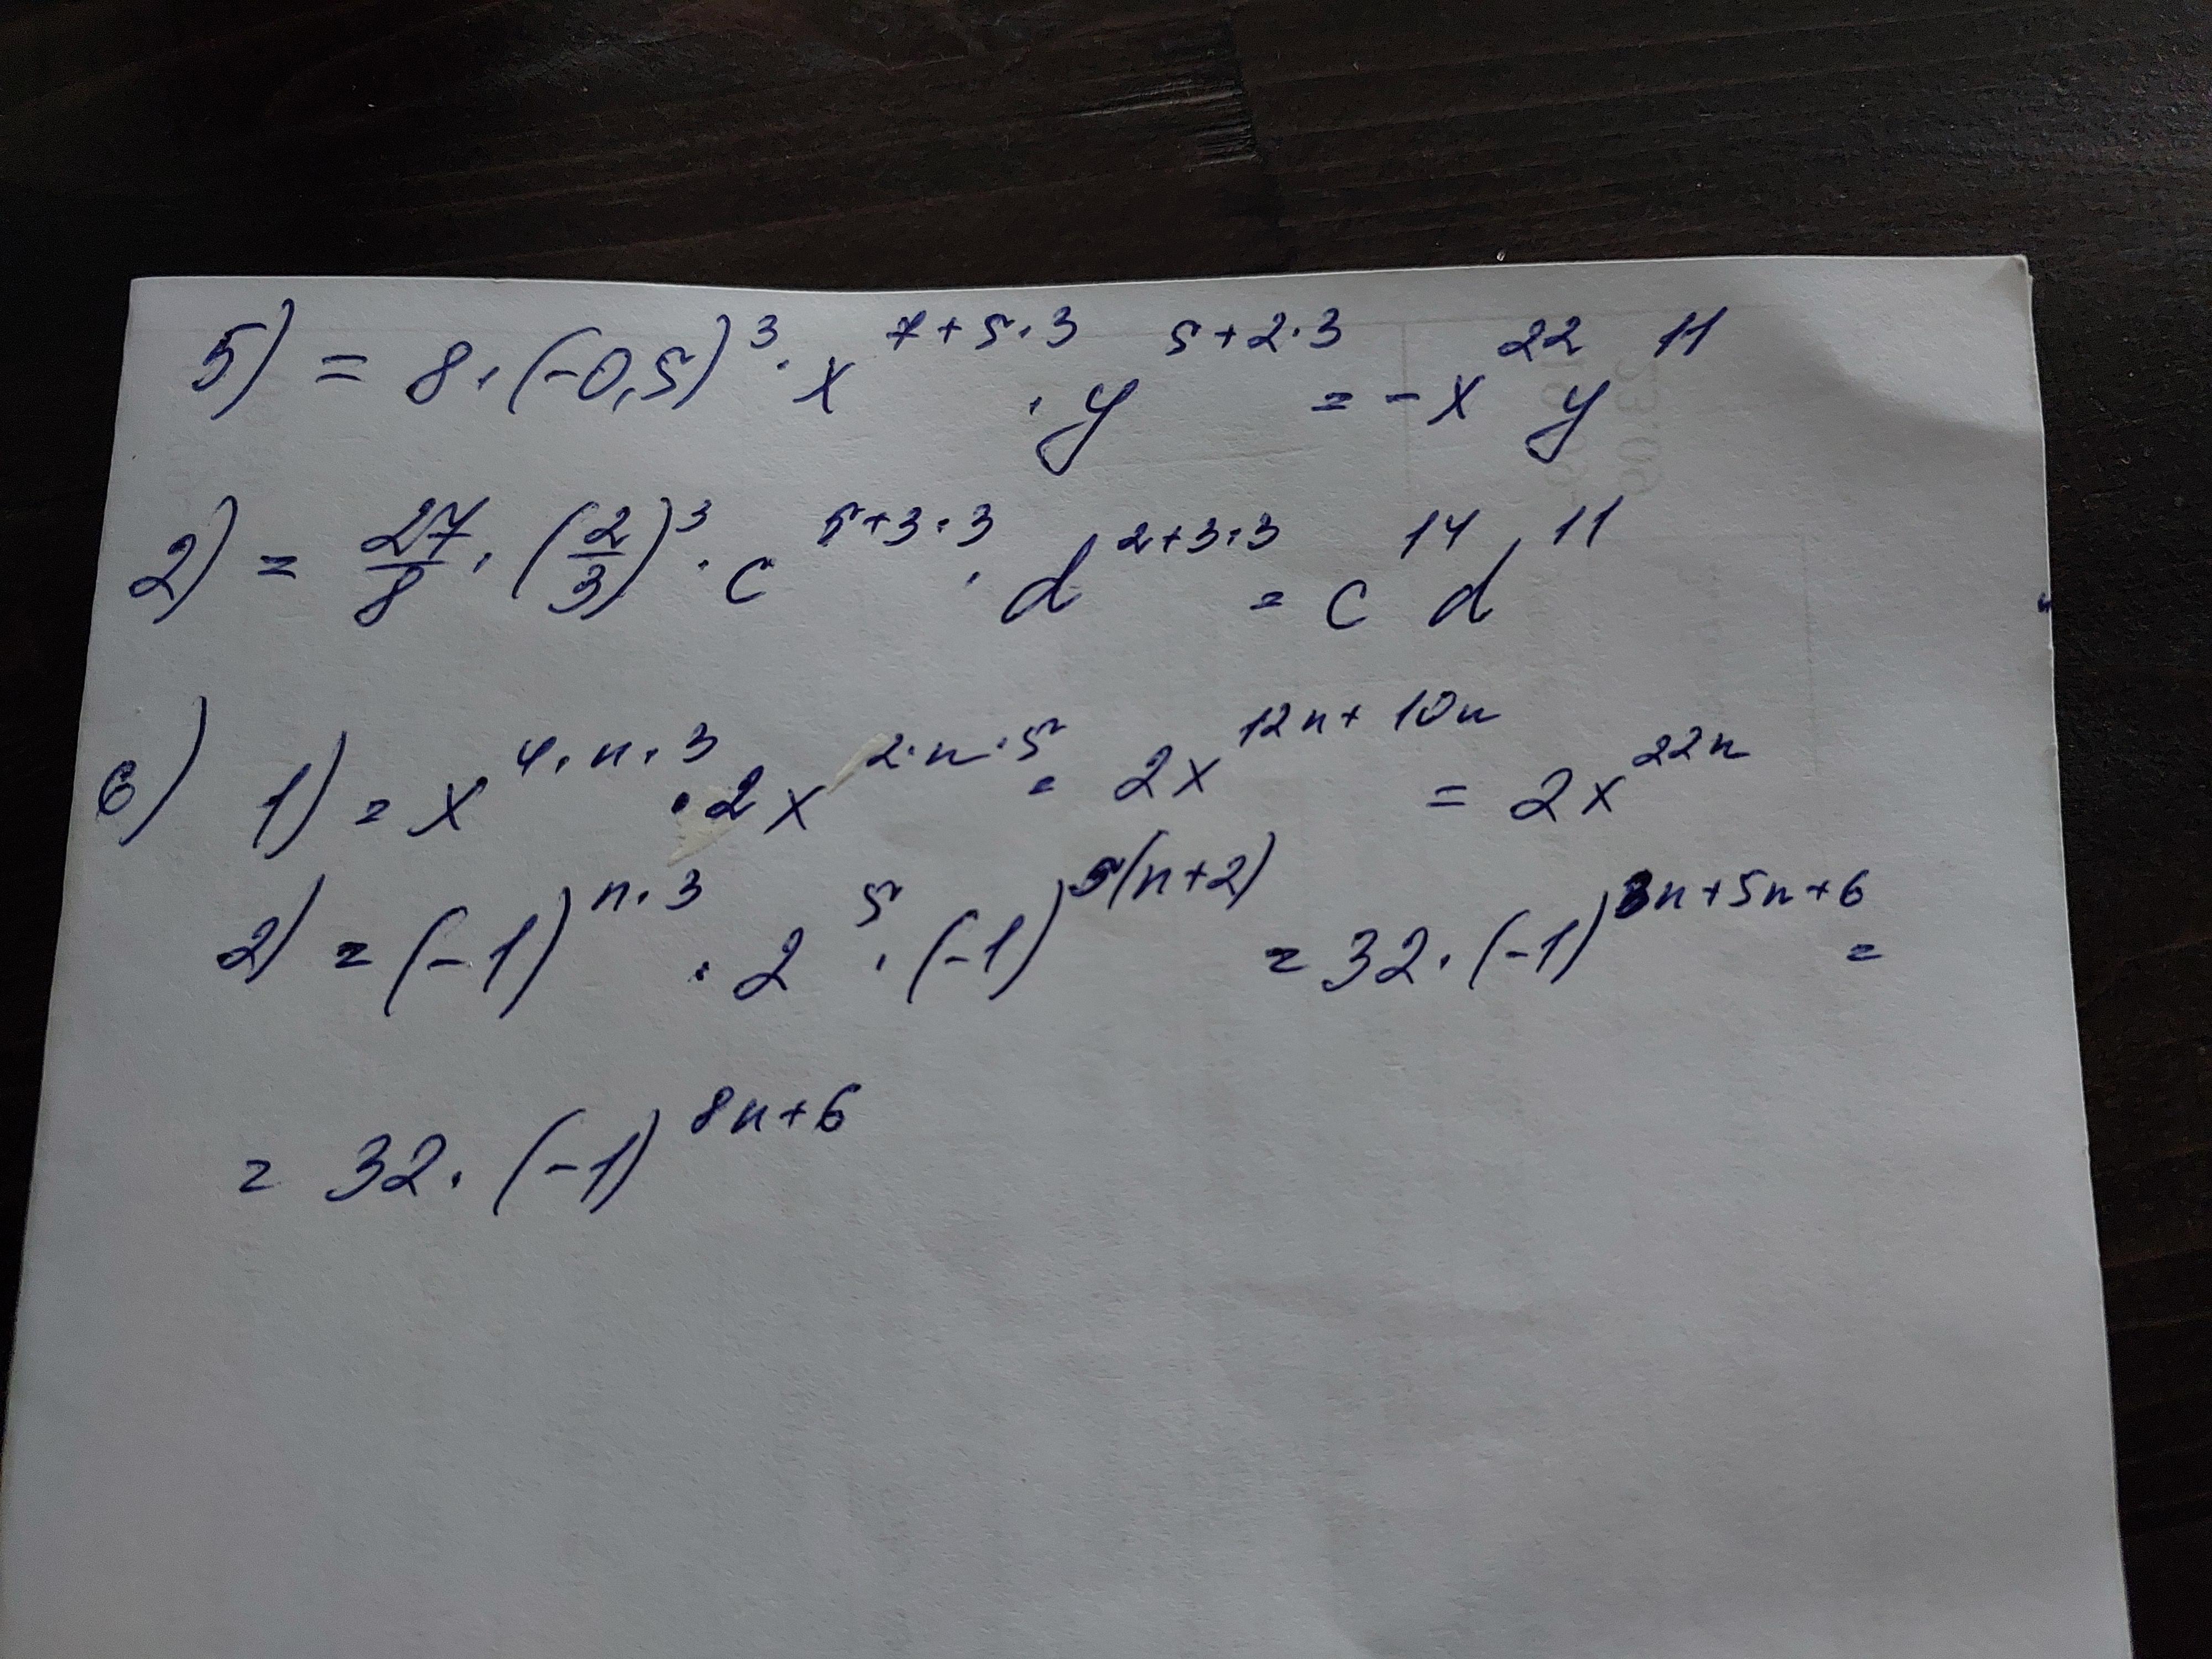 5) = 8 · (-0,5)³ · x⁷⁺⁵·³ · y⁵⁺²·³ = -x²²y¹¹
2) = 27/8 · (2/3)³ · c⁵⁺³·³ · d²⁺³·³ = c¹⁴d¹¹
6) 1) = x⁴·ⁿ·³ · 2x²·ⁿ·⁵ = 2x¹²ⁿ⁺¹⁰ⁿ = 2x²²ⁿ
2) = (-1)ⁿ·³ · 2⁵ · (-1)⁵⁽ⁿ⁺²⁾ = 32 · (-1)³ⁿ⁺⁵ⁿ⁺⁶ =
= 32 · (-1)⁸ⁿ⁺⁶